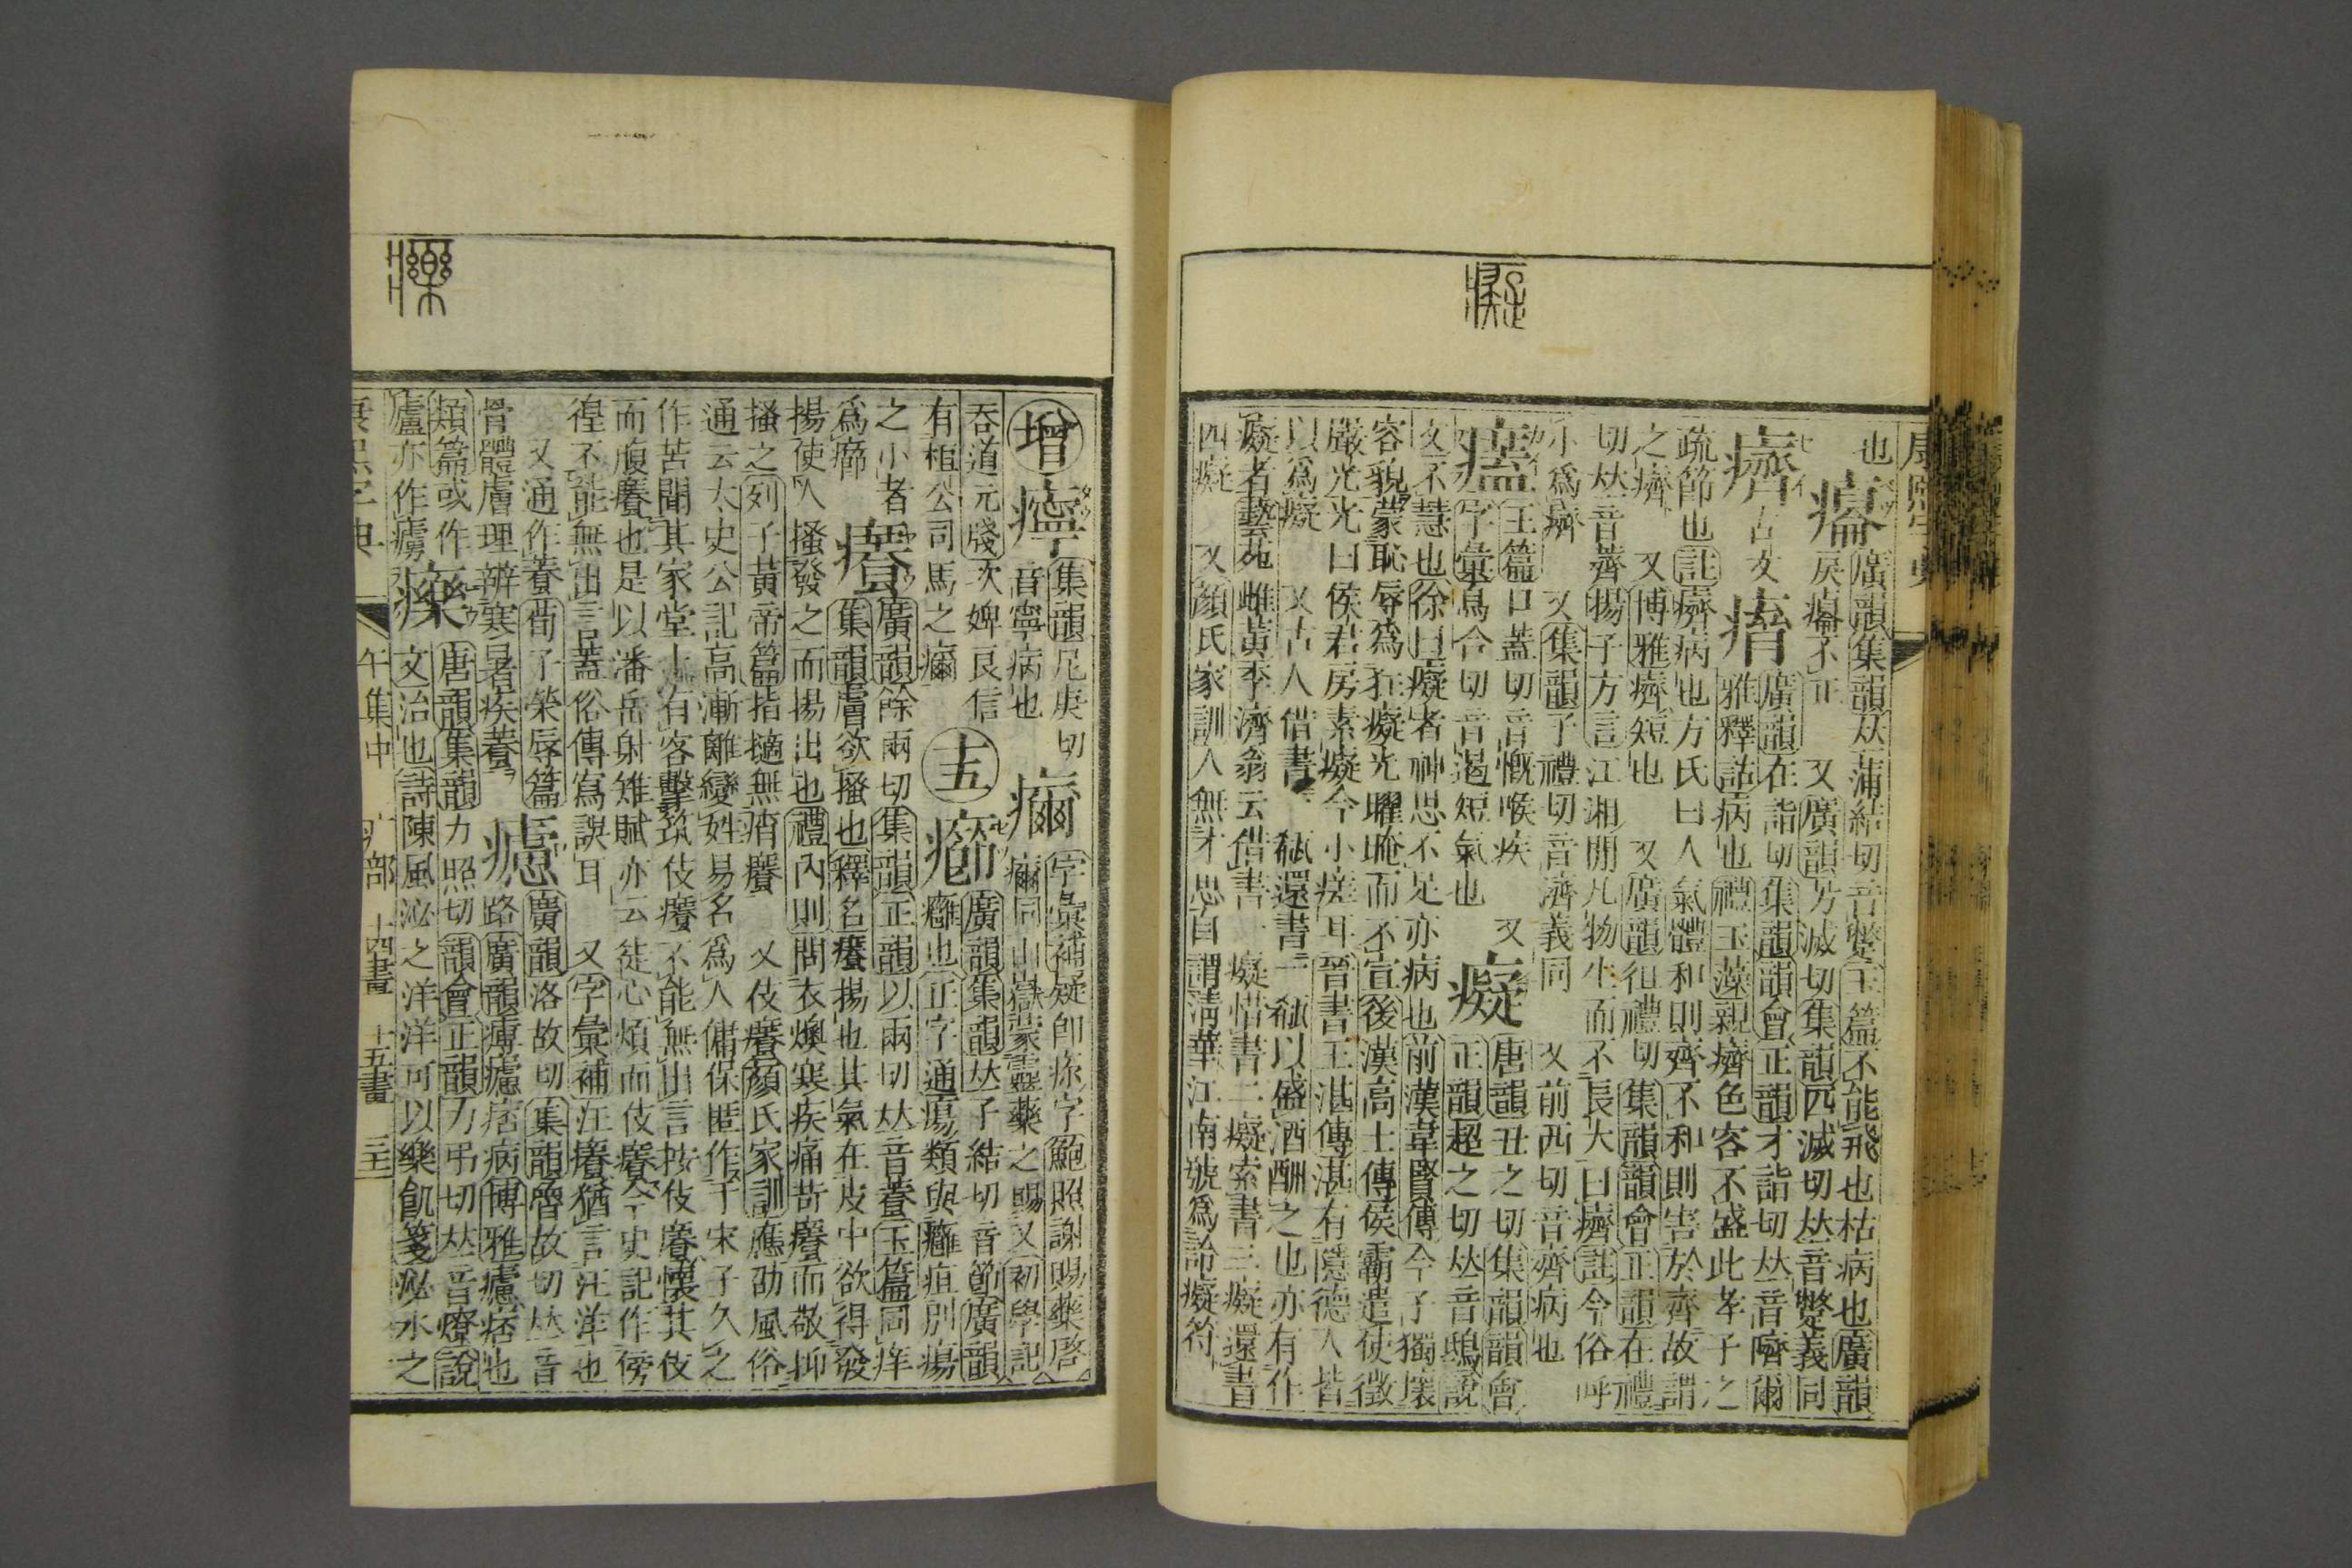 康熙字典
也癟廣韻集韻𠀤蒲結切音蹩玉篇不能飛也枯病也廣韻
戾癟不正　又廣韻芳滅切集韻匹滅切𠀤音瞥義同
癠古文廣韻在詣切集韻韻會正韻才詣切𠀤音嚌爾
雅釋詁病也禮玉藻親癠色容不盛此孝子之
疏節也註癠病也方氏曰人氣體和則齊不和則害於齊故謂
之癠　又博雅癠短也　又廣韻徂禮切集韻韻會正韻在禮
切𠀤音薺揚子方言江湘閒凡物生而不長大曰癠註今俗呼
小爲癠　又集韻子禮切音濟義同　又前西切音齊病也
玉篇口蓋切音慨喉疾　又
字彙烏合切音遏短氣也
癡唐韻丑之切集韻韻會
正韻超之切𠀤音鴟說
文不慧也徐曰癡者神思不足亦病也前漢韋賢傳今子獨壞
容貌蒙恥辱爲狂癡光曜晻而不宣後漢高士傳侯霸遣使徵
嚴光光曰侯君房素癡今小瘥耳晉書王湛傳湛有隱德人皆
以爲癡　又古人借書一瓻還書一瓻以盛酒酬之也亦有作
癡者藝苑雌黃李濟翁云借書一癡惜書二癡索書三癡還書
四癡　又顏氏家訓人無才思自謂淸華江南號爲詅癡符
癡
增
集韻尼庚切
音寧病也
字彙補疑卽㾆字鮑照謝賜藥啓
癎同山嶽蒙靈藥之賜又初學記
吞道元牋次婢良信
有梔公司馬之
十五
癤廣韻集韻𠀤子結切音節廣韻
癰也正字通瘍類與癰疽別瘍
之小者
爲癤
癢廣韻餘兩切集韻正韻以兩切𠀤音養玉篇同痒
集韻膚欲搔也釋名癢揚也其氣在皮中欲得發
揚使人搔發之而揚出也禮內則問衣燠寒疾痛苛癢而敬抑
搔之列子黃帝篇指擿無痟癢　又伎癢顏氏家訓應劭風俗
通云太史公記高漸離變姓易名爲人傭保匿作于宋子久之
作苦聞其家堂上有客擊筑伎癢不能無出言按伎癢懷其伎
而腹癢也是以潘岳射雉賦亦云徒心煩而伎癢今史記作徬
徨不能無出言蓋俗傳寫誤耳　又字彙補汪癢猶言汪洋也
又通作養荀子榮辱篇
骨體膚理辨寒暑疾養
廣韻洛故切集韻魯故切𠀤音
路廣韻痡癙痞病博雅癙痞也
類篇或作
廬亦作
療唐韻集韻力照切韻會正韻力弔切𠀤音療說
文治也詩陳風泌之洋洋可以樂飢箋泌水之
康熙字典
午集中　疒部　十四畫　十五畫